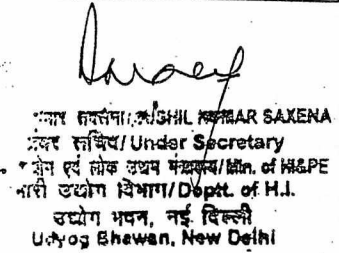 सक्सेना/SUSHIL KUMAR SAXENA
अवर सचिव/Under Secretary
उद्योग एवं लोक उद्यम मंत्रालय/Min. of HI&PE
भारी उद्योग विभाग/Deptt. of H.I.
उद्योग भवन, नई दिल्ली
Udyog Bhawan, New Delhi